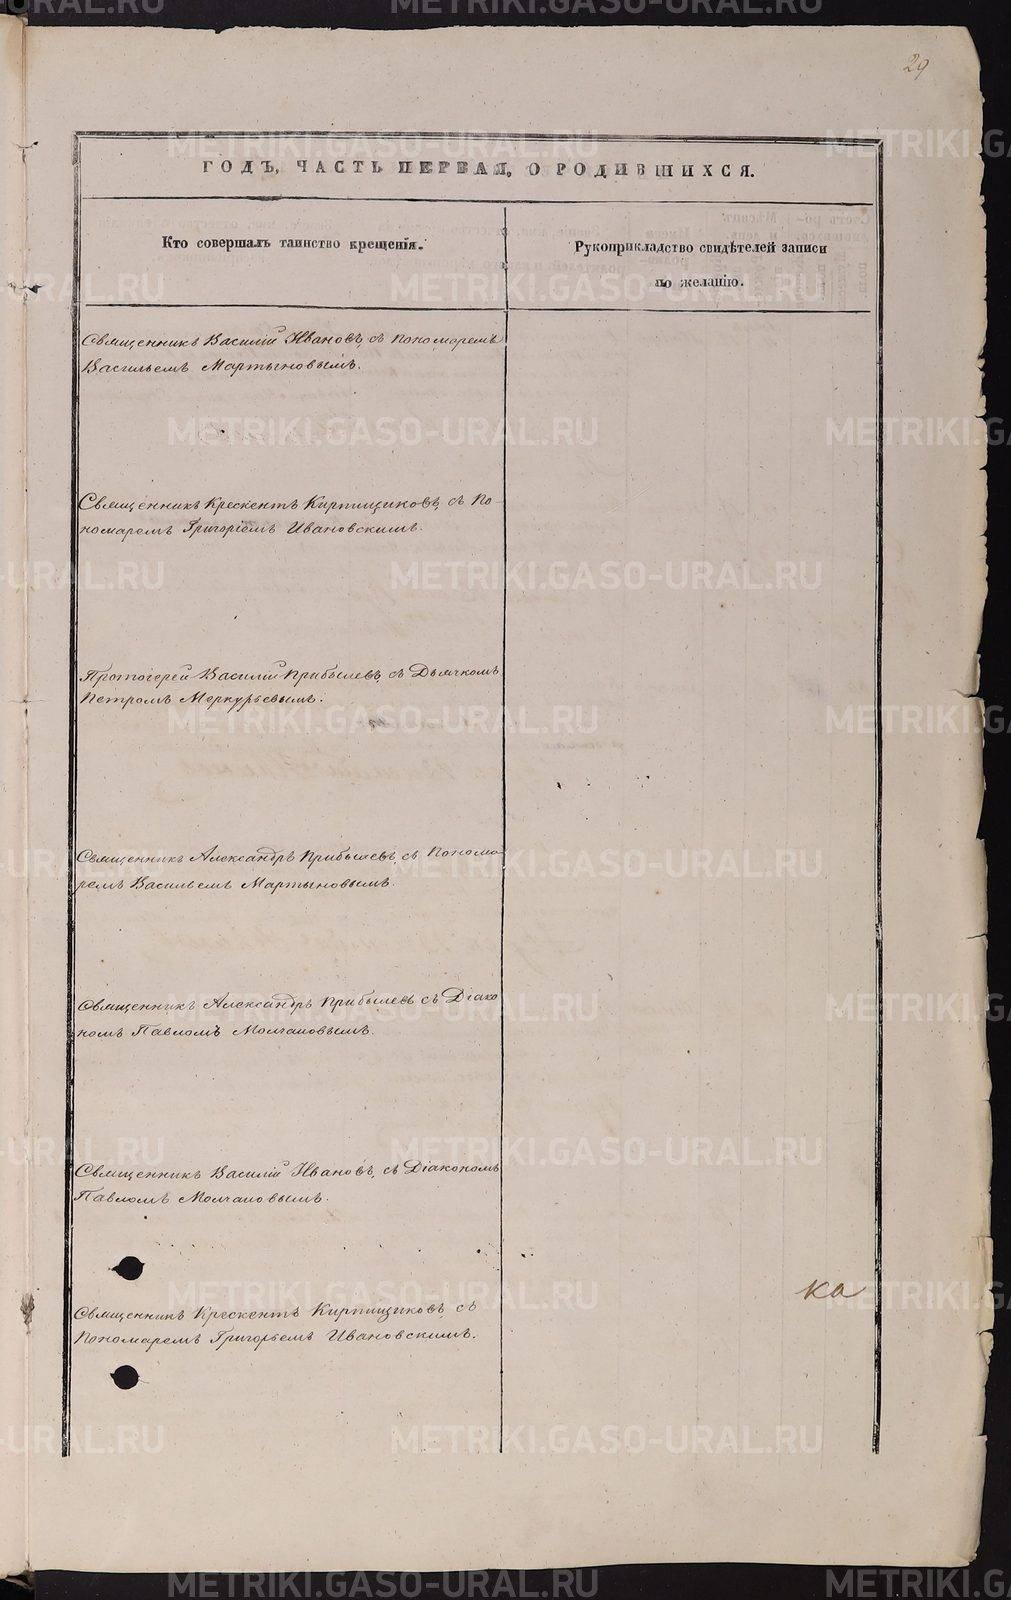 29
ГОДЪ, ЧАСТЬ ПЕРВАЯ, О РОДИВШИХСЯ.
Кто совершалъ таинство крещенія.
Рукоприкладство свидѣтелей записи
по желанію.
Священникъ Василій Ивановъ, съ Пономаремъ
Васильемъ Мартыновымъ.
Священникъ Крескентъ Кирпищиковъ, съ По-
номаремъ Григоріемъ Ивановскимъ.
Протоіерей Василій Прибылевъ, съ Дьячкомъ
Петромъ Меркурьевымъ.
Священникъ Александръ Прибылевъ, съ Понома-
ремъ Васильемъ Мартыновымъ.
Священникъ Александръ Прибылевъ съ Діако-
номъ Павломъ Молчановымъ.
Священникъ Василій Ивановъ, съ Діакономъ
Павломъ Молчановымъ.
Священникъ Крескентъ Кирпищиковъ, съ
Пономаремъ Григорьемъ Ивановскимъ.
ка
METRIKI.GASO-URAL.RU